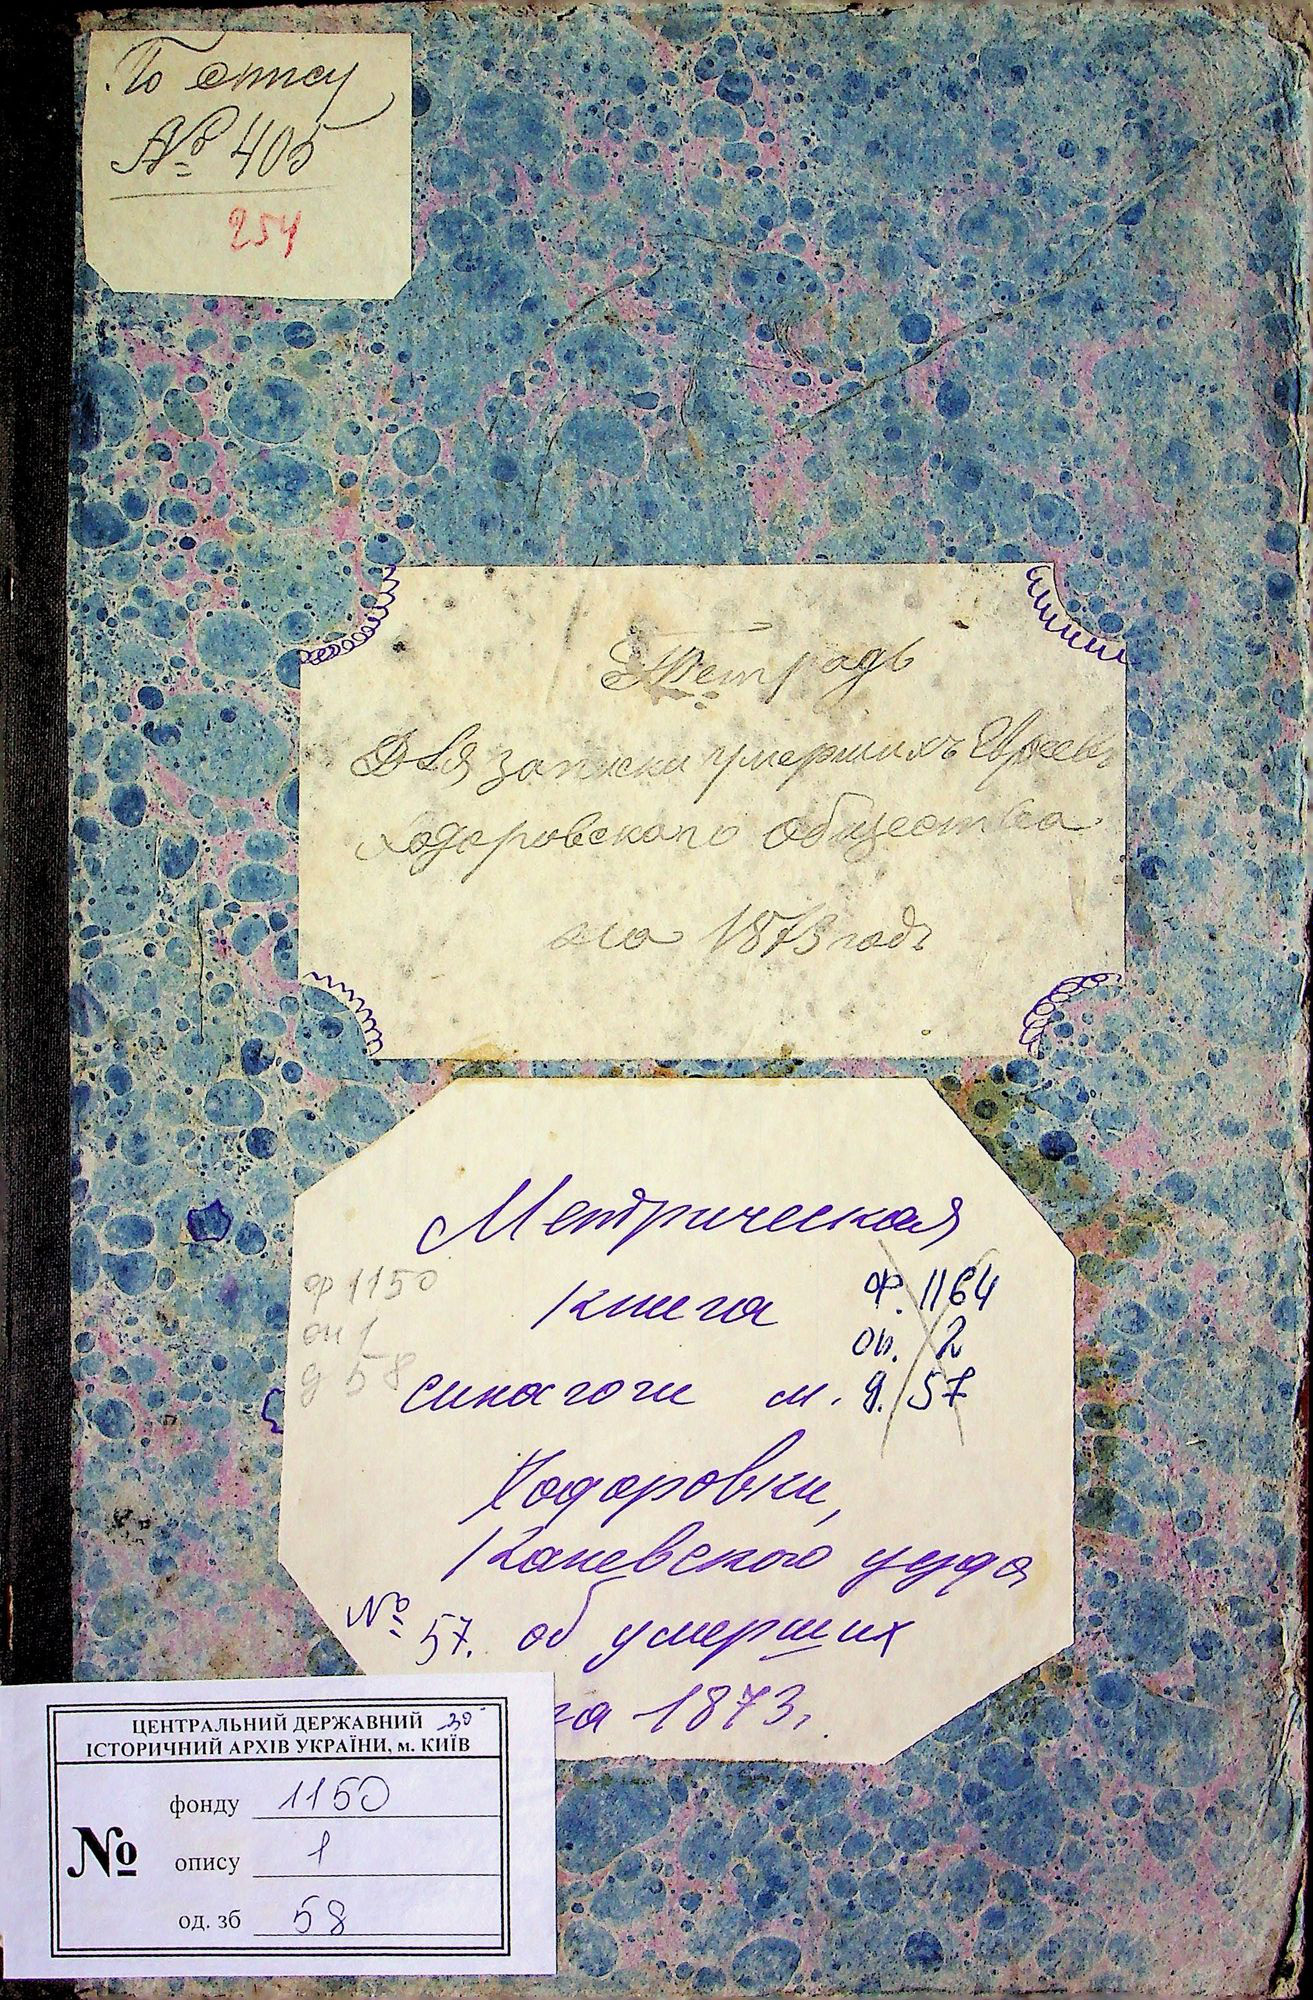 По опису
№ 405
254
Тетрадь
Для записки умершихъ Евреевъ
Ходоровскаго общества
на 1873 годъ
Метрическая
книга
синагоги м.
Ходоровки,
Каневского уезда
№ 57. об умерших
за 1873 г.
ф 1150
оп 1
д 58
ф. 1164
оп. 2
д. 57
ЦЕНТРАЛЬНИЙ ДЕРЖАВНИЙ
ІСТОРИЧНИЙ АРХІВ УКРАЇНИ, м. КИЇВ
№
фонду 1150
опису 1
од. зб 58